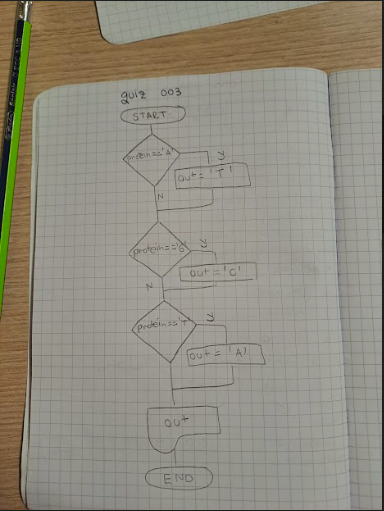 quiz 003
START
protein=='A'
Y
out = 'T'
N
protein=='G'
Y
out = 'C'
N
protein=='T'
Y
out = 'A'
out
END